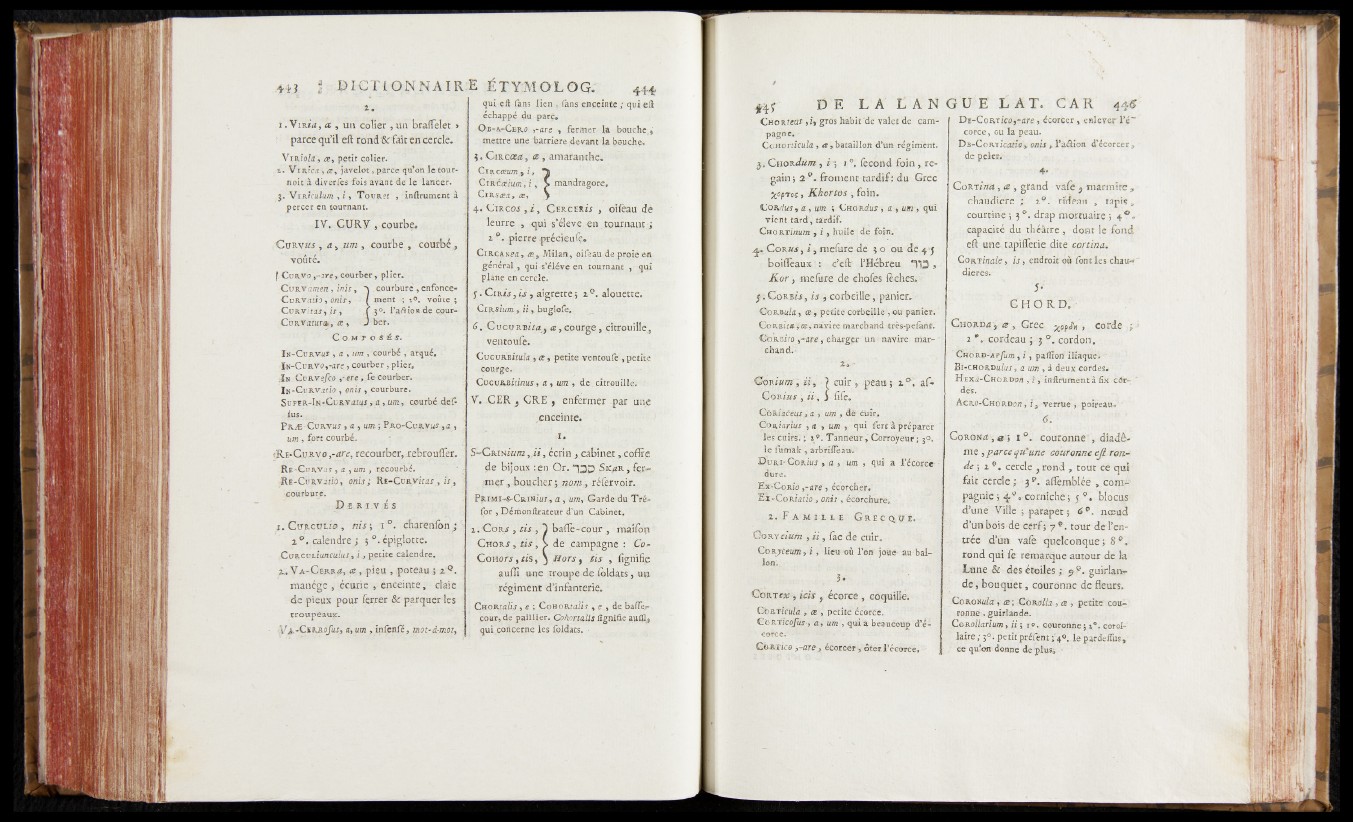 443 DICTIONNAIRE ÉTYMOLOG. 444
2.
1. VIRia, æ, un colier, un braſſelet,
parce qu'il eſt rond & fait en cercle.
VIRiola, æ, petit colier.
2. VIRies, æ, javelot, parce qu'on le tour-
noit à diverſes fois avant de le lancer.
3. VIRiculum, i, TOURet, inſtrument à
percer en tournant.
IV. CURV, courbe.
CURVus, a, um, courbe, courbé,
voûté.
CURVO,-are, courber, plier.
CURVamen, inis, courbure, enfonce-
CURVatio, onis, ment; 2°. voûte;
CURVitas, is, 3°. l'action de cour-
CURVatura, æ, ber.
COMPOSÉS.
IN-CURVus, a, um, courbé, arqué.
IN-CURVO,-are, courber, plier.
IN CURVeſco,-ere, ſe courber.
IN-CURVatio, onis, courbure.
SUPER-IN-CURVatus, a, um, courbé deſ-
ſus.
PRÆ-CURVus, a, um; PRO-CURVus, a,
um, fort courbé.
RE-CURVO,-are, recourber, rebrouſſer.
RE-CURVus, a, um, recourbé.
RE-CURVatio, onis; RE-CURVitas, is,
courbure.
DERIVÉS
1. CURCULIO, nis; 1°. charenſon;
2°. calendre; 3°. épiglotte.
CURCULIunculus, i, petite calendre.
2. VA-CERRA, æ, pieu, poteau; 2°.
manége, écurie, enceinte, claie
de pieux pour ferrer & parquer les
troupeaux.
VA-CERROſus, a, um, inſenſé, mot-à-mot,
qui eſt ſans lien, ſans enceinte; qui eſt
échappé du parc.
OB-A-CERO,-are, fermer la bouche,
mettre une barriere devant la bouche.
3. CIRCœa, æ, amaranthe.
CIRCœum, i,
CIRCœium, i, mandragore.
CIRSæa, æ,
4. CIRCOS, i, CERCERIS, oiſeau de
leurre, qui s'éleve en tournant;
2°. pierre précieuſe.
CIRCANea, æ, Milan, oiſeau de proie en
général, qui s'éléve en tournant, qui
plane en cercle.
5. CIRIS, is, aigrette; 2°. alouette.
CIRSium, ii, bugloſe.
6. CUCURBITA, æ, courge, citrouille,
ventouſe.
CUCURBItula, æ, petite ventouſe, petite
courge.
CUCURBItinus, a, um, de citrouille.
V. CER, CRE, enfermer par une
enceinte.
1.
S-CRINium, ii, écrin, cabinet, coffre
de bijoux: en Or. סכר SKAR, fer-
mer, boucher; nom, réſervoir.
PRIMI-S-CRINius, a, um, Garde du Tré-
ſor, Démonſtrateur d'un Cabinet.
2. CORS, tis, baſſe-cour, maiſon
CHORS, tis, de campagne: Co-
COHORS, tis, Hors, tis, ſignifie
auſſi une troupe de ſoldats, un
régiment d'infanterie.
CHORtalis, e; COHORtalis, e, de baſſe-
cour, de paillier. Cohortalis ſignifie auſſi,
qui concerne les ſoldats.
445 DE LA LANGUE LAT. CAR 446
CHORTeus, i, gros habit de valet de cam-
pagne.
COHORTicula, æ, bataillon d'un régiment.
3. CHORdum, i; 1°. ſecond foin, re-
gain; 2°. froment tardif: du Grec
χορτος, Khortos, foin.
CORdus, a, um; CHORdus, a, um, qui
vient tard, tardif.
CHORTinum, i, huile de foin.
4. CORus, i, meſure de 30 ou de 45
boiſſeaux: c'eſt l'Hébreu כור,
Kor, meſure de choſes ſèches.
5. CORBis, is, corbeille, panier.
CORBula, æ, petite corbeille, ou panier.
CORBita, æ, navire marchand très-peſant.
CORBito,-are, charger un navire mar-
chand.
2.
CORium, ii, cuir, peau; 2°. aſ-
CORius, ii, ſiſe.
CORIaceus, a, um, de cuir.
CORIarius, a, um, qui ſert à préparer
les cuirs; 2°. Tanneur, Corroyeur; 3°.
le ſumak, arbriſſeau.
DURI-CORius, a, um, qui a l'écorce
dure.
EX-CORIO,-are, écorcher.
EX-CORIatio, onis, écorchure.
2. FAMILLE GRECQUE.
CORYcium, ii, ſac de cuir.
CORYceum, i, lieu où l'on joue au bal-
lon.
3.
CORTex, icis, écorce, coquille.
CORTicula, æ, petite écorce.
CORTICoſus, a, um, qui a beaucoup d'é-
corce.
CORTICO,-are, écorcer, ôter l'écorce.
DE-CORTICO,-are, écorcer, enlever l'é-
corce, ou la peau.
DE-CORTICatio, onis, l'action d'écorcer,
de peler.
4.
CORTina, æ, grand vaſe, marmite,
chaudiere; 2°. rideau, tapis,
courtine; 3°. drap mortuaire; 4°.
capacité du théâtre, dont le fond
eſt une tapiſſerie dite cortina.
CORTinale, is, endroit où ſont les chau-
dieres.
5.
CHORD.
CHORDA, æ, Grec χορδη, corde;
2°. cordeau; 3°. cordon.
CHORD-apſum, i, paſſion iliaque.
BI-CHORDulus, a um, à deux cordes.
HEXA-CHORDOn, i, inſtrument à ſix cor-
des.
ACRO-CHORDon, i, verrue, poireau.
6.
CORONA, æ; 1°. couronne, diadê-
me, parce qu'une couronne eſt ron-
de; 2°. cercle, rond, tout ce qui
fait cercle; 3°. aſſemblée, com-
pagnie; 4°. corniche; 5°. blocus
d'une Ville; parapet; 6°. nœud
d'un bois de cerf; 7°. tour de l'en-
trée d'un vaſe quelconque; 8°.
rond qui ſe remarque autour de la
Lune & des étoiles; 9°. guirlan-
de, bouquet, couronne de fleurs.
CORONula, æ; COROLLA, æ, petite cou-
ronne, guirlande.
COROLLarium, ii; 1°. couronne; 2°. corol-
laire; 3°. petit préſent; 4°. le pardeſſus,
ce qu'on donne de plus.